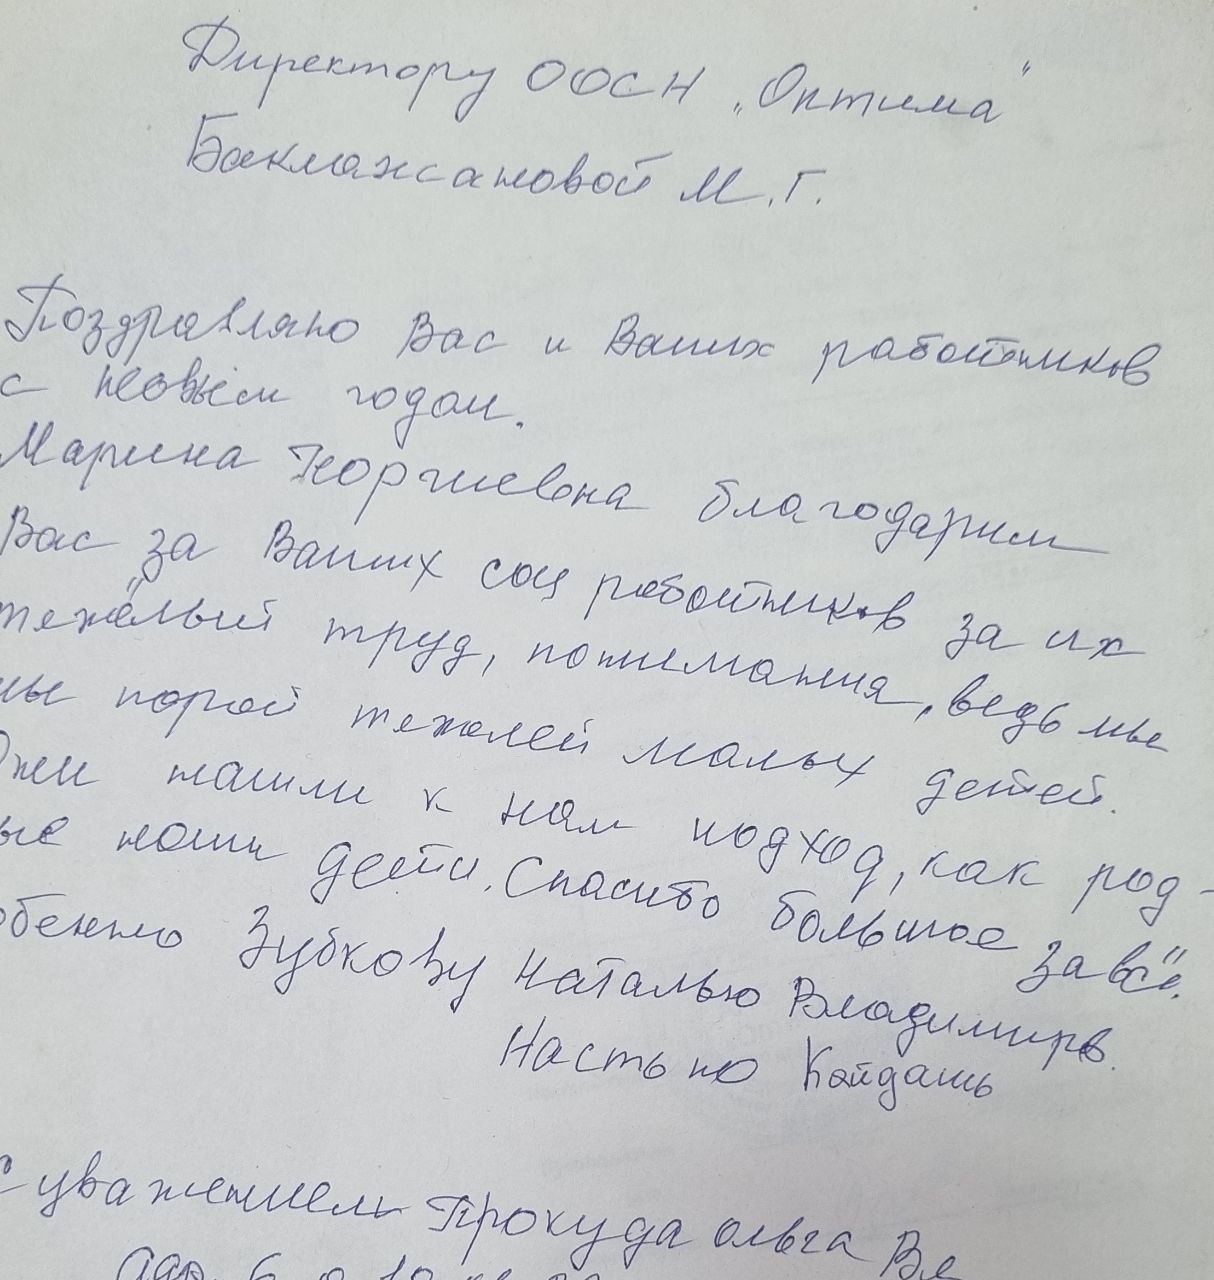 Директору ООСН „Оптима"
Бакмажсановой М.Г.
Поздравляю Вас и Ваших работников
с новым годом.
Марина Георгиевна благодарим
Вас за Ваших соц работников за их
тяжёлый труд, понимания, ведь мы
мы порой тежелей малых детей.
Они нашли к нам подход, как род-
ые наши дети. Спасибо большое за всё.
обенно Зубкову Наталью Владимиров.
Настьню Кайдашь
С уважением Прокуда Ольга Вл